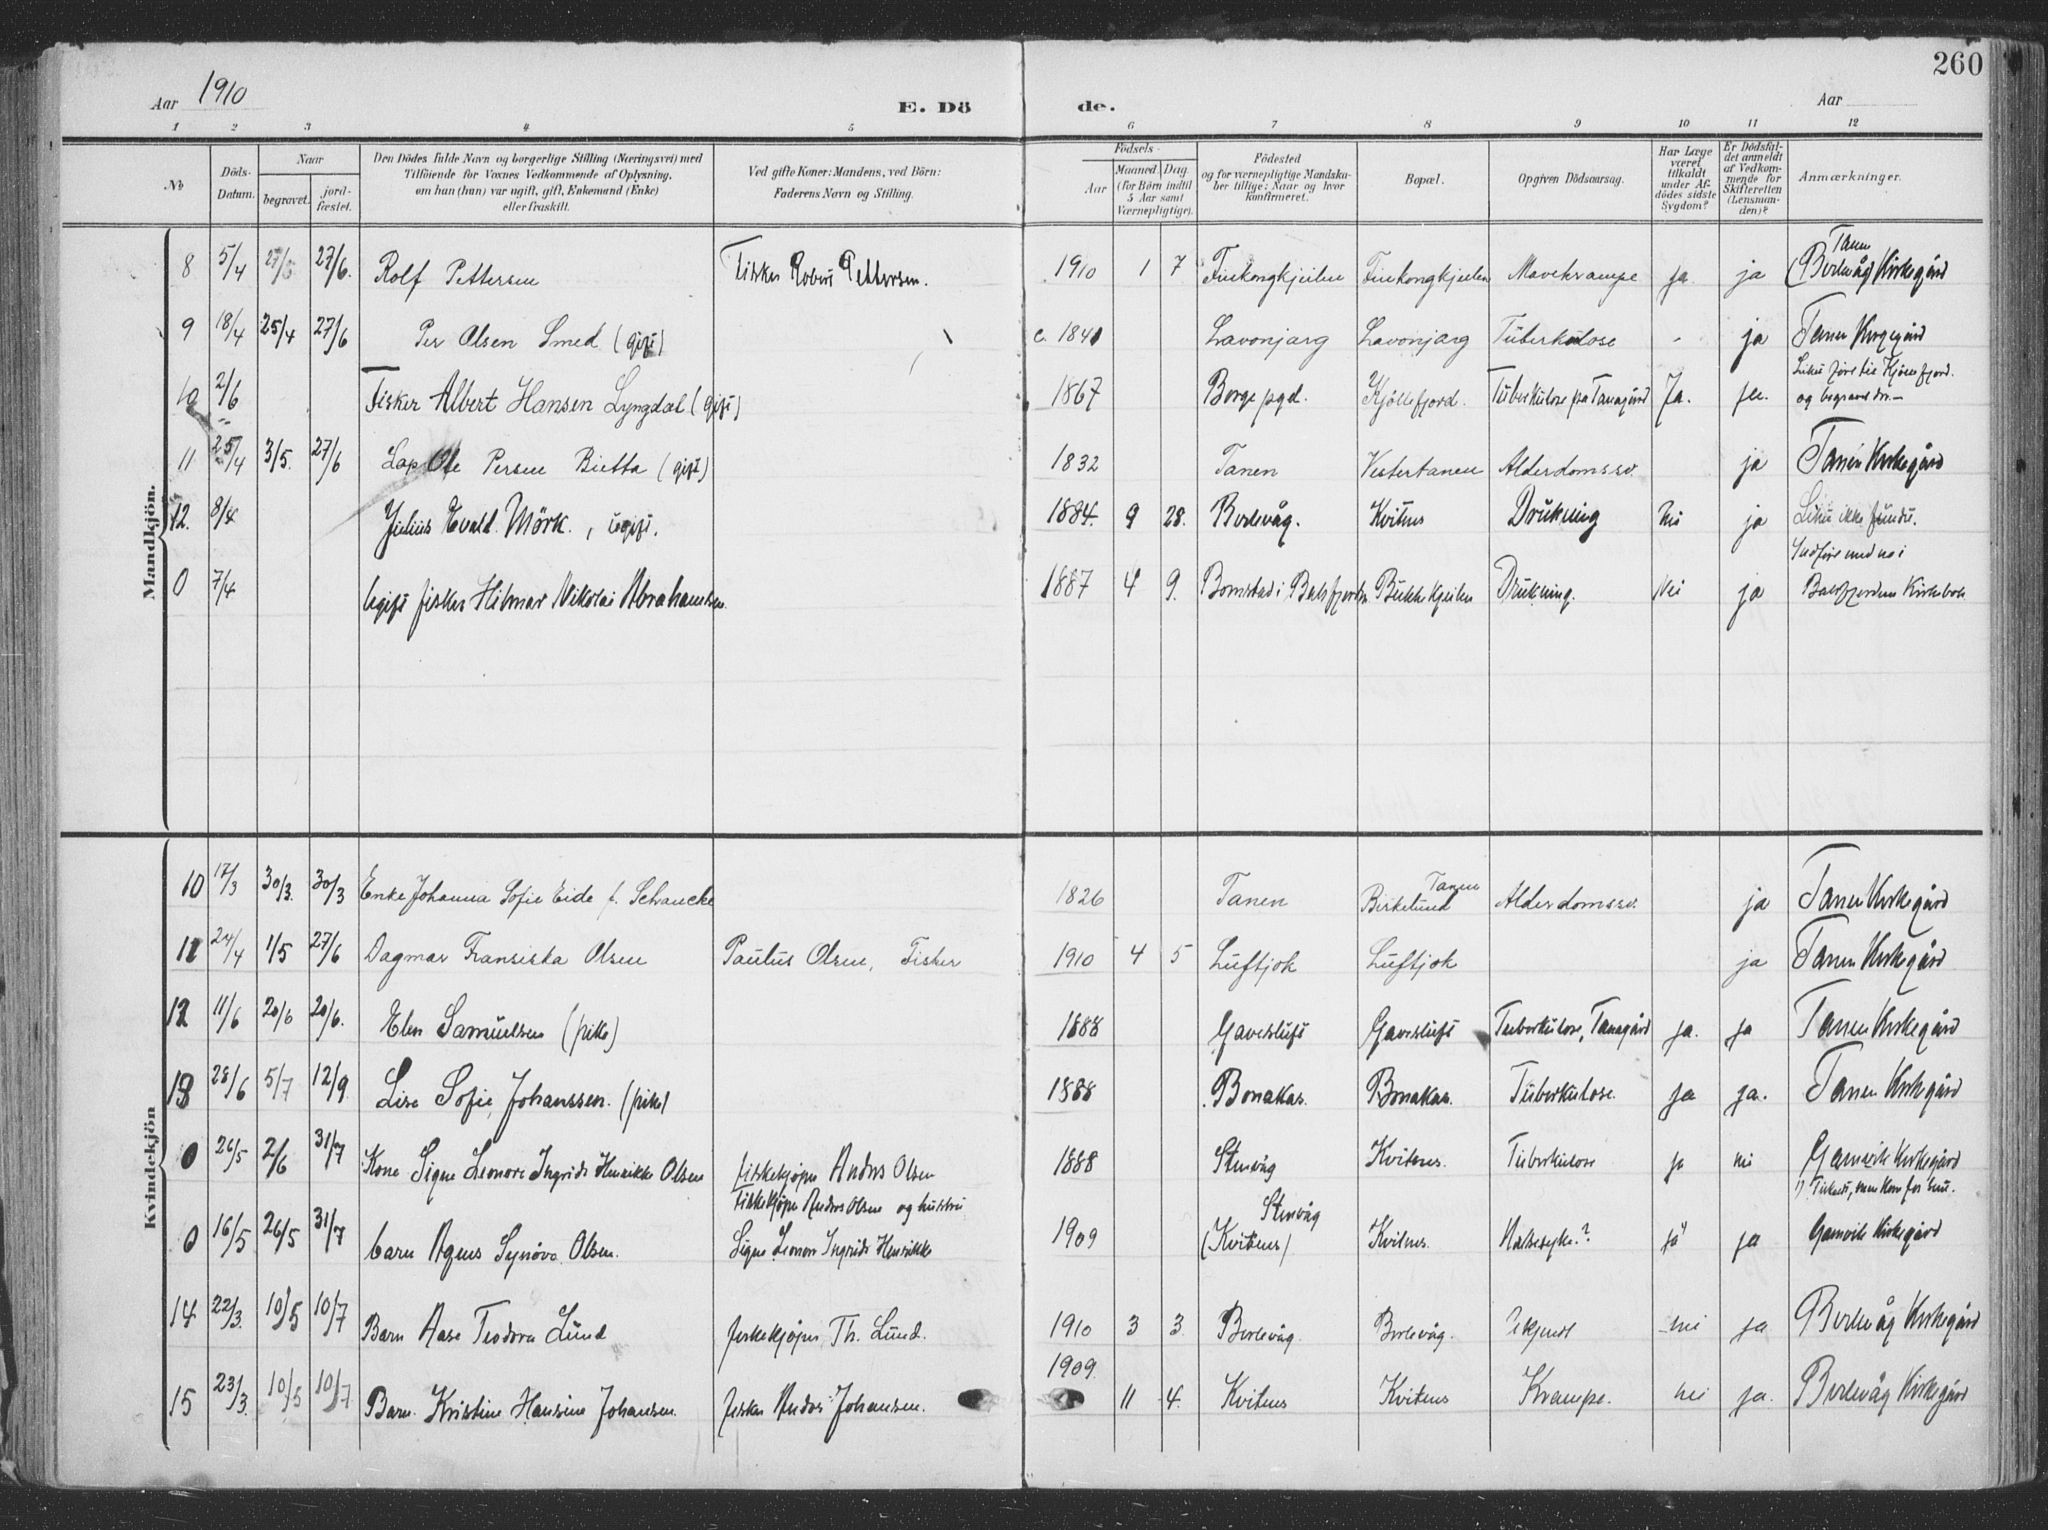 260
Aar 1910 E. Dö de. Aar
1 2 3 4 5 6 7 8 9 10 11 12
No
Döds-Datum.
Naar
begravet.
jord-fæstet.
Den Dödes fulde Navn og borgerlige Stilling (Næringsvei) med
Tilföiende for Voxnes Vedkommende af Oplysning,
om han (hun) var ugift, gift, Enkemand (Enke)
eller fraskilt.
Ved gifte Koner: Mandens, ved Börn:
Faderens Navn og Stilling.
Födsels-
Aar
Maaned. Dag.
(for Börn indtil
5 Aar samt
Værnepligtige).
Födested
og for værnepligtige Mandska-
ber tillige: Naar og hvor
konfirmeret.
Bopæl.
Opgiven Dödsaarsag.
Har Læge
været
tilkaldt
under Af-
dödes sidste
Sygdom?
Er Dödsfal-
det anmeldt
af Vedkom-
mende for
Skifteretten
(Lensman-
den)?
Anmærkninger.
Mandkjön.
8 5/4 27/5 27/6. Rolf Pettersen Fisker Robert Pettersen. 1910 1 7 Finkongkjeilen Finkongkjeilen Mavekrampe ja ja Tanen (Berlevåg) Kirkegård
9 18/4 25/4 27/6 Per Olsen Smed (gift) c. 1840 Lavonjarg Lavonjarg Tuberkulose - ja Tanen Kirkegård
10 2/6 Fisker Albert Hansen Lyngdal (gift) 1867 Borge pgd. Kjöllefjord. Tuberkulose på Tanagård Ja. ja. Liket ført til Kjøllefjord.
og begravet der. -
11 25/4 3/5. 27/6 Lap Ole Persen Bietta (gift) 1832 Tanen Vestertanen Alderdomssv. ja Tanen Kirkegård
12. 8/4 Julius Evald Mörk., ugift. 1884. 9 28. Berlevåg. Kvitnes Drukning Nei ja Liket ikke fundet.
0 7/4 Ugift fisker Hilmar Nikolai Abrahamsen 1887 4 9. Bomstad i Balsfjorden Bukkekjeilen Drukning. Nei ja Indført med no i
Balsfjorden Kirkebok
Kvindekjön
10 17/3 30/3. 30/3 Enke Johanna Sofie Eide f. Schancke 1826 Tanen Birkelund Tanen Alderdomssv. ja Tanen Kirkegård
11 24/4 1/5 27/6 Dagmar Fransiska Olsen Paulus Olsen, Fisker 1910 4 5 Luftjok Luftjok ja Tanen Kirkegård
12 11/6 20/6 20/6. Elen Samuelsen (pike) 1888 Gavesluft Gavesluft Tuberkulose, Tanagård ja. ja Tanen Kirkegård
13 28/6 5/7 12/9 Lise Sofie Johanssen. (pike) 1888 Bonakas. Bonakas. Tuberkulose. ja ja. Tanen Kirkegård
0 26/5 2/6 31/7 Kone Signe Leonore Ingrids Henrikke Olsen fiskekjøper Anders Olsen 1888 Stenvåg Kvitnes. Tuberkulose ja nei Gamvik Kirkegård
0 16/5 26/5 31/7 barn Agnes Synöve Olsen. Fiskekjøper Anders Olsen og hustru
Signe Leonore Ingrids Henrikke 1909 Stenvåg (Kvitnes) Kvitnes. Halsesyke? ja ja Gamvik Kirkegård
14 22/3. 10/5 10/7 Barn Aase Teodora Lund fiskekjøper Th. Lund. 1910 3 3. Berlevåg. Berlevåg. Ukjendt nei ja Berlevåg Kirkegård
15 23/3. 10/5 10/7 Barn Kristine Hansine Johansen. fisker Anders Johansen. 1909. 11 4. Kvitnes Kvitnes Krampe. nei ja. Berlevåg Kirkegård